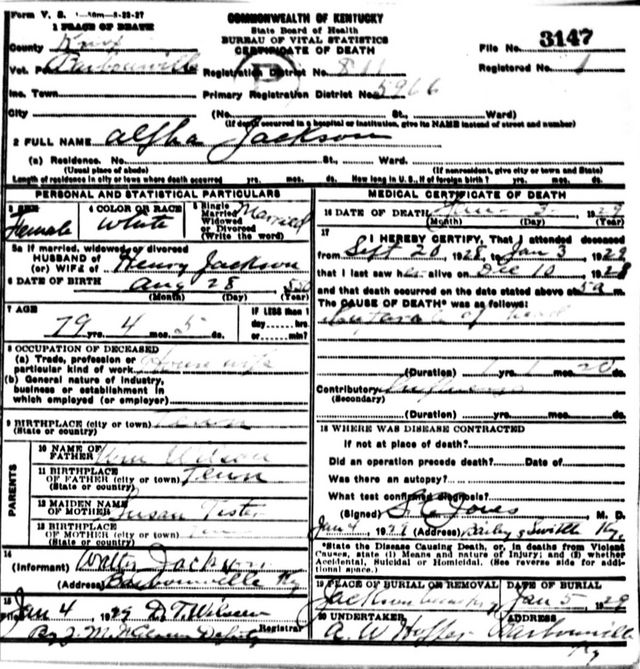 Form V. S. 1-50m-8-23-27
COMMONWEALTH OF KENTUCKY
State Board of Health
BUREAU OF VITAL STATISTICS
CERTIFICATE OF DEATH
1 PLACE OF DEATH
County Knox
File No. 3147
Vot. Barbourville
Registration District No. 811
Registered No. 1
Inc. Town
Primary Registration District No. 5966
City (No. St., Ward)
(If death occurred in a hospital or institution, give its NAME instead of street and number)
2 FULL NAME Alpha Jackson
(a) Residence. No. St., Ward.
(Usual place of abode) (If nonresident, give city or town and State)
Length of residence in city or town where death occurred yrs. mos. ds. How long in U. S., if of foreign birth? yrs. mos. ds.
PERSONAL AND STATISTICAL PARTICULARS
3 SEX Female
4 COLOR OR RACE White
5 Single Married Widowed or Divorced (Write the word) Married
5a If married, widowed or divorced
HUSBAND of
(or) WIFE of Henry Jackson
6 DATE OF BIRTH Aug 28
(Month) (Day) (Year)
7 AGE
79 yrs. 4 mos. 5 ds.
IF LESS than 1 day hrs. or min.?
8 OCCUPATION OF DECEASED
(a) Trade, profession or particular kind of work House wife
(b) General nature of industry, business or establishment in which employed (or employer)
9 BIRTHPLACE (city or town)
(State or country)
PARENTS
10 NAME OF FATHER Wm Wilson
11 BIRTHPLACE OF FATHER (city or town) Tenn
(State or country)
12 MAIDEN NAME OF MOTHER Susan
13 BIRTHPLACE OF MOTHER (city or town)
(State or country)
14
(Informant) Walter Jackson
(Address) Barbourville Ky
15
Filed Jan 4 1929 D. T. Wilson
Registrar
MEDICAL CERTIFICATE OF DEATH
16 DATE OF DEATH Jan 3 1929
(Month) (Day) (Year)
17
I HEREBY CERTIFY, That I attended deceased
from Sept 20 1928, to Jan 3 1929
that I last saw her alive on Dec 10 1928
and that death occurred on the date stated above at 5 a m.
The CAUSE OF DEATH* was as follows:
(Duration) yrs. mos. 20 ds.
Contributory Influenza
(Secondary)
(Duration) yrs. mos. ds.
18 WHERE WAS DISEASE CONTRACTED
If not at place of death?
Did an operation precede death? Date of
Was there an autopsy?
What test confirmed diagnosis?
(Signed) Jones M. D.
Jan 4 1929 (Address) Ky.
*State the Disease Causing Death, or, in deaths from Violent Causes, state (1) Means and nature of Injury; and (2) whether Accidental, Suicidal or Homicidal. (See reverse side for additional space.)
19 PLACE OF BURIAL OR REMOVAL
Jackson
DATE OF BURIAL
Jan 5 1929
20 UNDERTAKER
ADDRESS
A. W. Hopper Barbourville
Ky